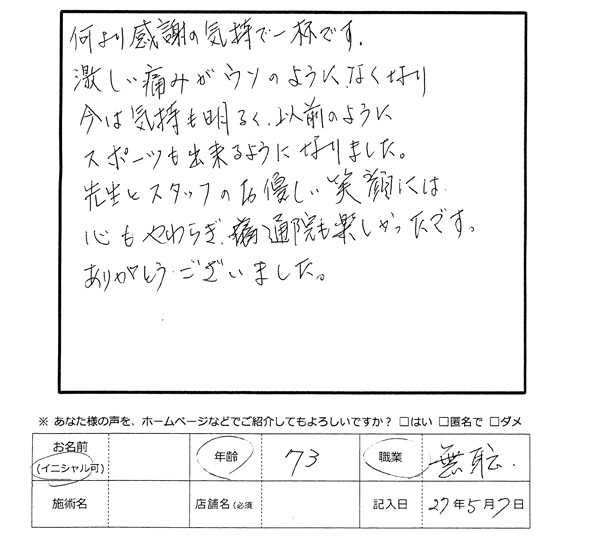 何より感謝の気持で一杯です.
激しい痛みがウソのように、なくなり
今は気持も明るく、以前のように
スポーツも出来るようになりました。
先生とスタッフのお優しい笑顔には
心もやわらぎ、通院も楽しかったです。
ありがとうございました。
※ あなた様の声を、ホームページなどでご紹介してもよろしいですか? □はい □匿名で □ダメ
お名前 (イニシャル可) 年齢 73 職業 無職.
施術名 店舗名(必須 記入日 27年5月7日